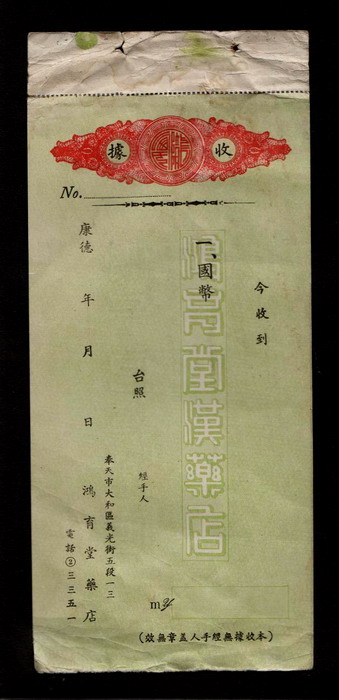 收據
No.
今收到
一、國幣
鴻育堂漢藥店
台照
經手人
康德 年 月 日 鴻育堂藥店
奉天市大和區義光街五段一三
電話②三三五一
(本收據無經手人盖章無效)